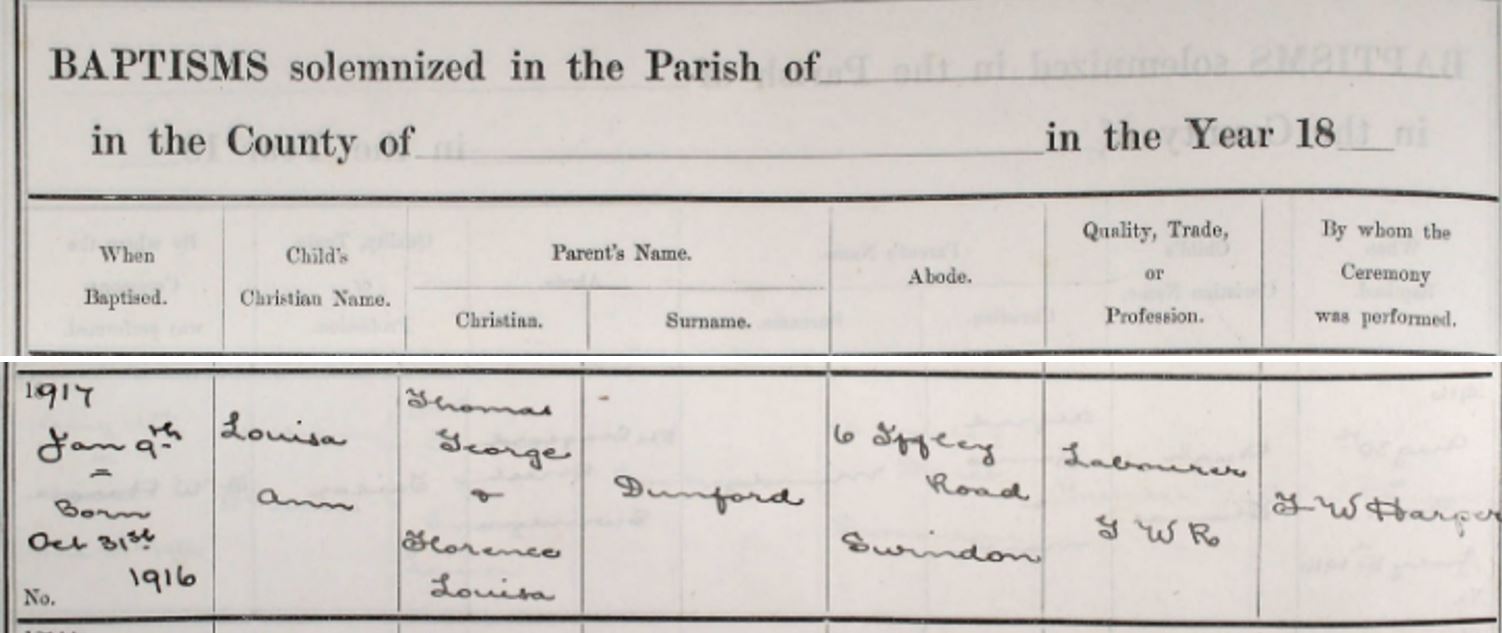 BAPTISMS solemnized in the Parish of
in the County of in the Year 18
When
Baptised.
Child's
Christian Name.
Parent's Name.
Christian.
Surname.
Abode.
Quality, Trade,
or
Profession.
By whom the
Ceremony
was performed.
1917
Jan 9th
=
Born
Oct 31st
1916
No.
Louisa
Ann
Thomas
George
&
Florence
Louisa
Dunford
6 Iffley
Road
Swindon
Labourer
G W R
F W Harper